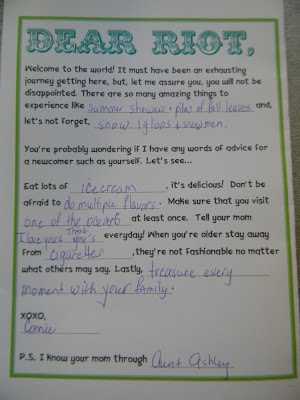 DEAR RIOT,
Welcome to the world! It must have been an exhausting
journey getting here, but, let me assure you, you will not be
disappointed. There are so many amazing things to
experience like summer showers, piles of fall leaves and,
let's not forget, snow igloos & snowmen.
You're probably wondering if I have any words of advice for
a newcomer such as yourself. Let's see...
Eat lots of ice cream, it's delicious! Don't be
afraid to do multiple flavors. Make sure that you visit
one of the oceans at least once. Tell your mom
I love you's everyday! When you're older stay away
from cigarettes, they're not fashionable no matter
what others may say. Lastly, treasure every
moment with your family.
XOXO,
Connie
P.S. I know your mom through Aunt Ashley